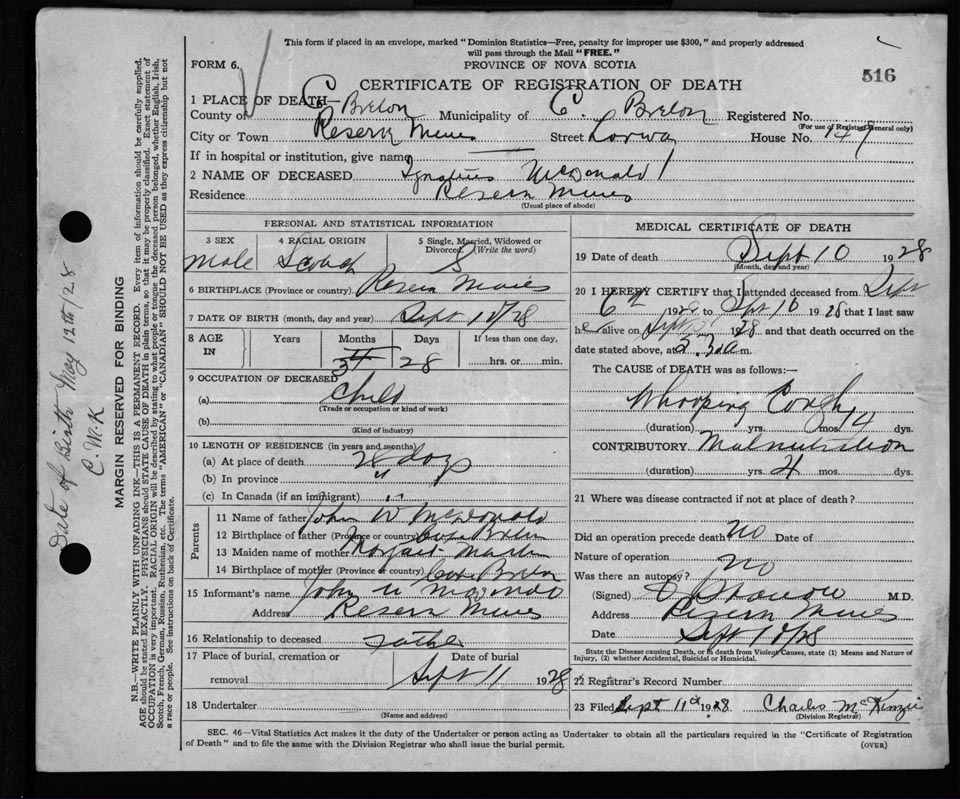 This form if placed in an envelope, marked "Dominion Statistics—Free, penalty for improper use $300," and properly addressed
will pass through the Mail "FREE."
FORM 6.
PROVINCE OF NOVA SCOTIA
516
CERTIFICATE OF REGISTRATION OF DEATH
1 PLACE OF DEATH—
County of C. Breton Municipality of C. Breton Registered No.
(For use of Registrar General only)
City or Town Reserve Mines Street Lorway House No.
If in hospital or institution, give name
2 NAME OF DECEASED Ignatius McDonald
Residence Reserve Mines
(Usual place of abode)
PERSONAL AND STATISTICAL INFORMATION
3 SEX 4 RACIAL ORIGIN 5 Single, Married, Widowed or Divorced (Write the word)
Male Scotch S
6 BIRTHPLACE (Province or country) Reserve Mines
7 DATE OF BIRTH (month, day and year) Sept
8 AGE IN Years Months Days If less than one day,
28 hrs. or min.
9 OCCUPATION OF DECEASED
(a) Child
(Trade or occupation or kind of work)
(b)
(Kind of industry)
10 LENGTH OF RESIDENCE (in years and months)
(a) At place of death 28 days
(b) In province "
(c) In Canada (if an immigrant) "
Parents
11 Name of father John W McDonald
12 Birthplace of father (Province or country) Cape Breton
13 Maiden name of mother Margaret Martin
14 Birthplace of mother (Province or country) Cape Breton
15 Informant's name John McDonald
Address Reserve Mines
16 Relationship to deceased Father
17 Place of burial, cremation or Date of burial
removal Sept 11 1928
18 Undertaker
(Name and address)
MEDICAL CERTIFICATE OF DEATH
19 Date of death Sept 10 1928
(Month, day and year)
20 I HEREBY CERTIFY that I attended deceased from Sept
6th 1928 to Sept 10 1928 that I last saw
h alive on Sept 1928 and that death occurred on
date stated above, at 3.30 a m.
The CAUSE of DEATH was as follows:—
Whooping Cough
(duration) yrs. mos. 14 dys.
CONTRIBUTORY Malnutrition
(duration) yrs. 4 mos. dys.
21 Where was disease contracted if not at place of death?
Did an operation precede death no Date of
Nature of operation
Was there an autopsy? no
(Signed) M.D.
Address Reserve Mines
Date Sept 10/28
State the Disease causing Death, or in death from Violent Causes, state (1) Means and Nature of
Injury, (2) whether Accidental, Suicidal or Homicidal.
22 Registrar's Record Number
23 Filed Sept 11th 1928 Charles McKenzie
(Division Registrar)
SEC. 46—Vital Statistics Act makes it duty of the Undertaker or person acting as Undertaker to obtain all the particulars required in the "Certificate of Registration
of Death" and to file the same with the Division Registrar who shall issue the burial permit.
(OVER)
Date of Birth May 12th/28
C. W. K
MARGIN RESERVED FOR BINDING
N.B.—WRITE PLAINLY WITH UNFADING INK—THIS IS A PERMANENT RECORD. Every item of information should be carefully supplied.
AGE should be stated EXACTLY. PHYSICIANS should STATE CAUSE OF DEATH in plain terms, so that it may be properly classified. Exact statement of
OCCUPATION is very important. RACIAL ORIGIN will be described by stating to what people or tongue the deceased person belonged, whether English, Irish,
Scotch, French, German, Russian, Ruthenian, etc. The terms "AMERICAN" or "CANADIAN" SHOULD NOT BE USED as they express citizenship but not
a race or people. See instructions on back of Certificate.